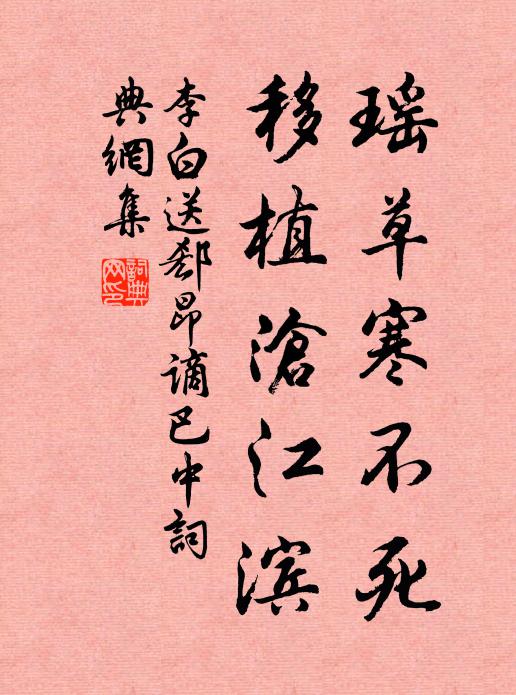 瑶草寒不死
移植滄江滨
李白送郄昂謫巴中詞
典網集
詞典
网印